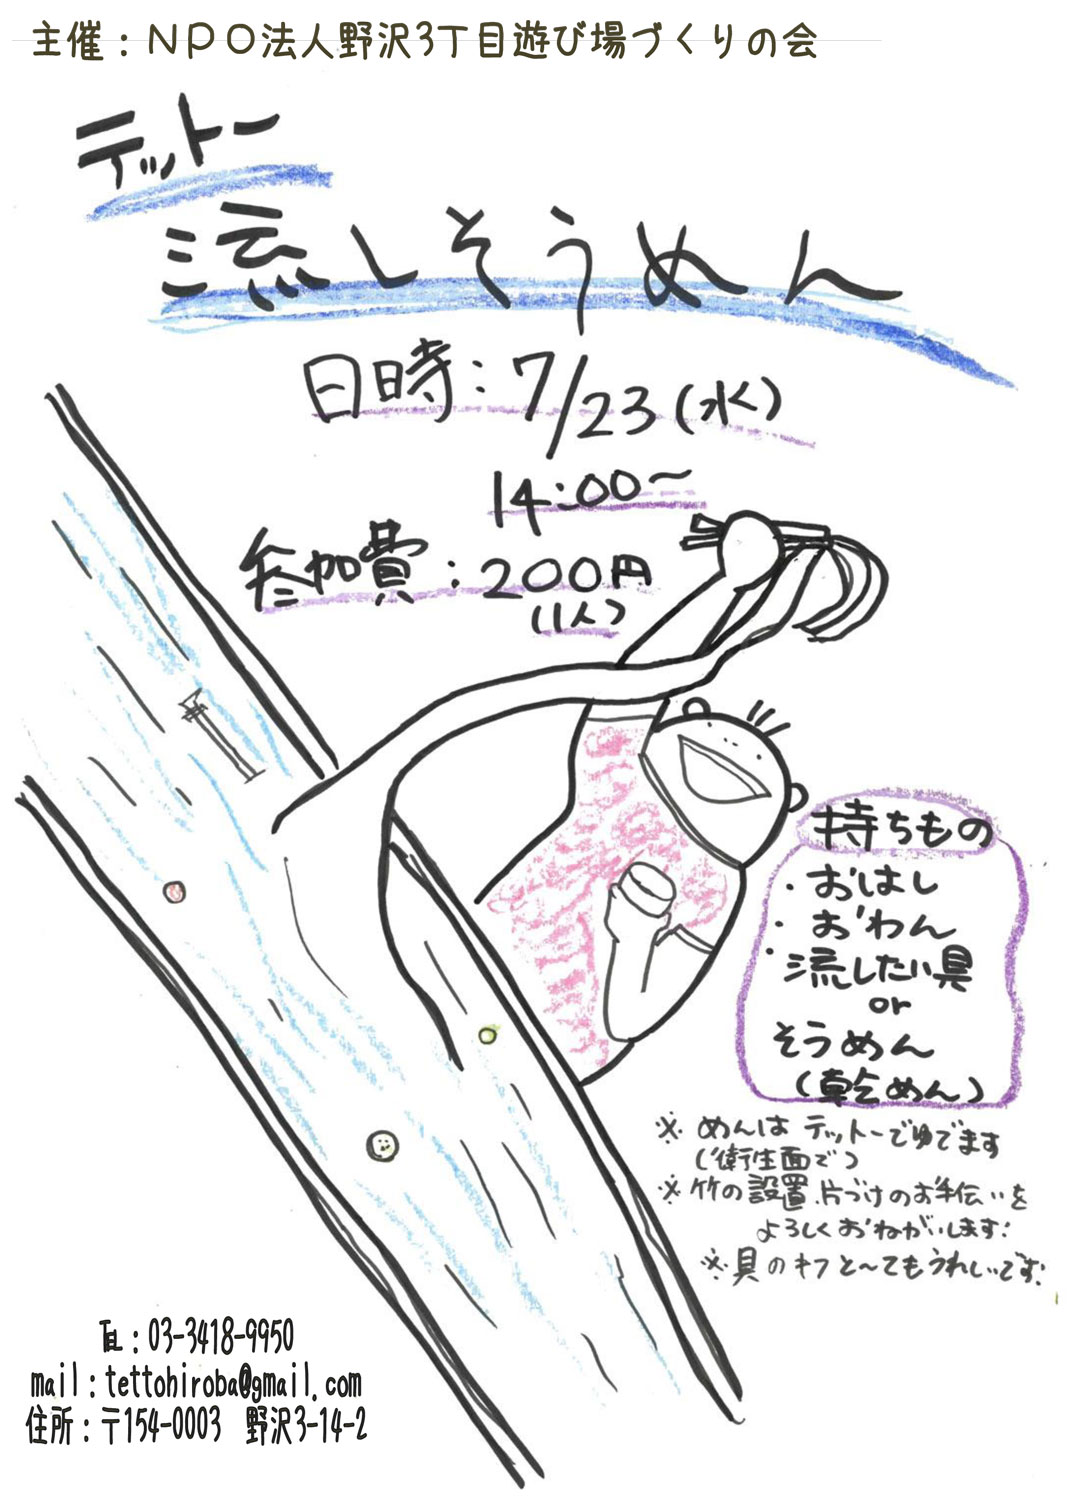 主催：NPO法人野沢3丁目遊び場づくりの会
テットー
流しそうめん
日時：7/23(水)
14:00〜
参加費：200円
(1人)
持ちもの
・おはし
・おわん
・流したい具
or
そうめん
(乾めん)
※めんはテットーでゆでます
(衛生面で)
※竹の設置、片づけのお手伝いを
よろしくおねがいします!
※具のキフと〜てもうれしいです!
TEL：03-3418-9950
mail：tettohiroba@gmail.com
住所：〒154-0003　野沢3-14-2